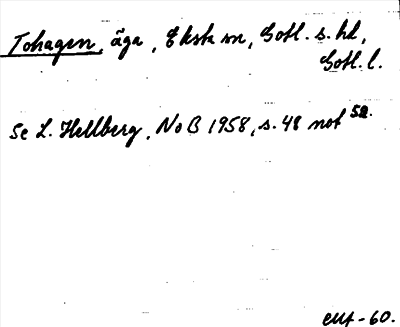 Tohagen, äga, Eksta sn, Gotl. s. hd,
Gotl. l.
Se L. Hellberg, NoB 1958, s. 48 not 52.
-60.